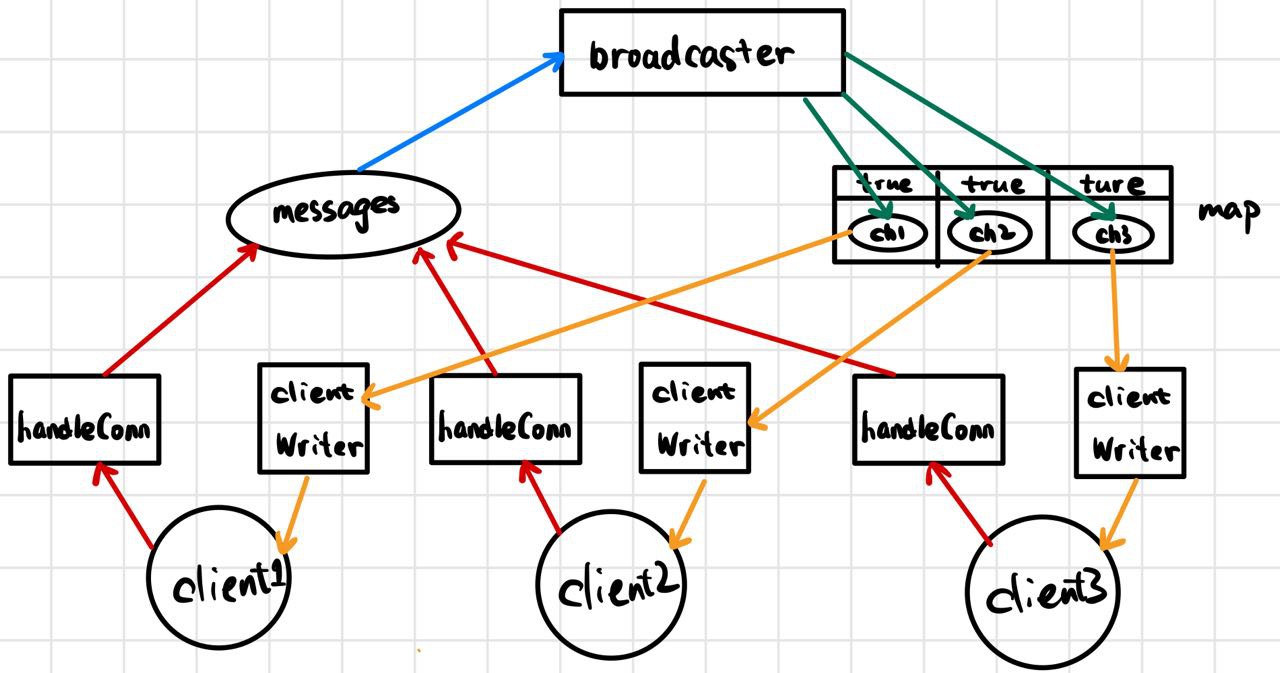 broadcaster
messages
true
true
ture
map
ch1
ch2
ch3
handleConn
client
Writer
handleConn
client
Writer
handleConn
client
Writer
client1
client2
client3